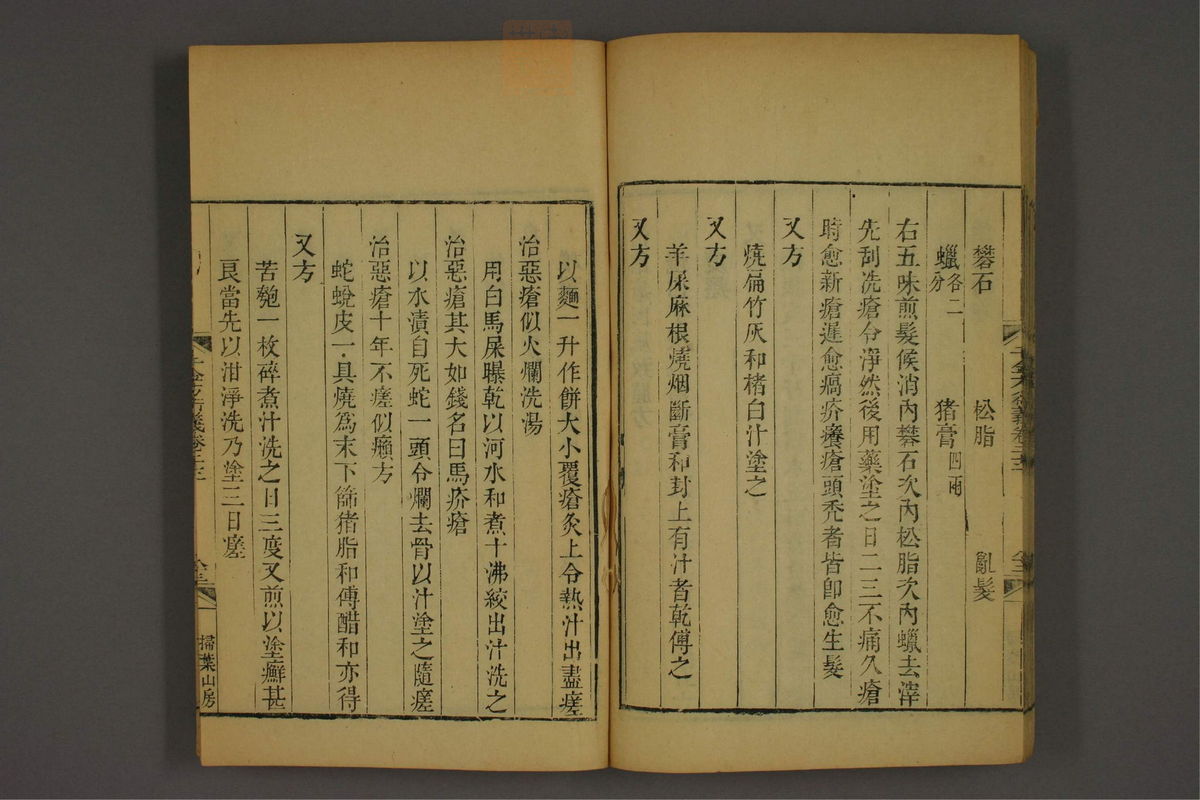 礬石 松脂 亂髮
蠟各二分 猪膏四兩
右五味煎髮候消內礬石次內松脂次內蠟去滓
先刮洗瘡令淨然後用藥塗之日二三不痛久瘡
時愈新瘡遲愈瘑疥癢瘡頭禿者皆卽愈生髮
又方
燒扁竹灰和楮白汁塗之
又方
羊屎麻根燒烟斷膏和封上有汁者乾傅之
又方
以麵一升作餅大小覆瘡灸上令熱汁出盡瘥
治惡瘡似火爛洗湯
用白馬屎曝乾以河水和煮十沸絞出汁洗之
治惡瘡其大如錢名曰馬疥瘡
以水漬自死蛇一頭令爛去骨以汁塗之隨瘥
治惡瘡十年不瘥似癩方
蛇蛻皮一具燒爲末下篩猪脂和傅醋和亦得
又方
苦瓠一枚碎煮汁洗之日三度又煎以塗癬甚
良當先以泔淨洗乃塗三日瘥
千金方衍義卷二十二
掃葉山房